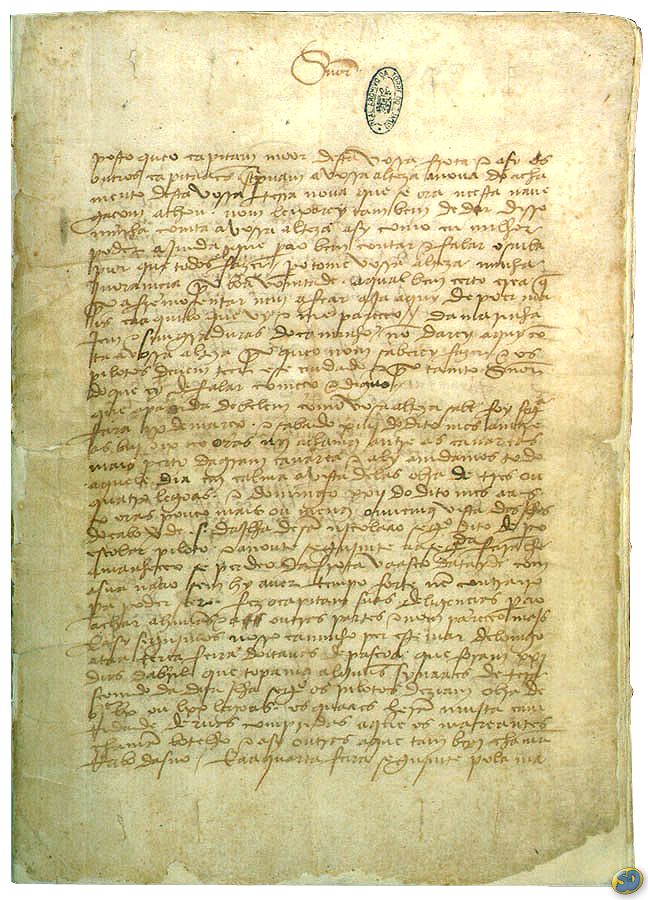 Snor
posto que o capitam moor desta vossa frota e asy os
outros capitaães screpuam a vossa alteza a noua do acha
mento desta vossa terra noua que se ora neesta naue
gaçom achou. nom leixarey tambem de dar disso
minha comta a vossa alteza asy como eu milhor
poder ajmda que pera o bem contar e falar o saiba
pior que todos fazer. pero tome vossa alteza minha
jnoramçia por boa vomtade. a qual bem certo crea que
por afremosentar nem afear aja aquy de poer ma
is ca aquilo que vy e me pareçeo. da marinha
jem e simgraduras do caminho nõ darey aquy cõ
ta a vossa alteza porque o nom saberey fazer e os
pilotos deuem teer ese cuidado e por tanto Snor
do que ey de falar começo e diguo
que a partida de belem como vosa alteza sabe foy segª
feira ix de março. e sabado xiiij do dito mes amtre
as biij e ix oras nos achamos amtre as canareas
mais perto da gram canarea e aly amdamos todo
aquele dia em calma a vista delas obra de tres ou
quatro legoas. e domingo xxij do dito mes aas
x oras pouco mais ou menos ouuemos vista das jlhas
do cabo verde. s. da jlha de sã nicolaao segº dito de pº
escolar piloto. e a noute segujmte aa segda feira lhe
amanheceo se perdeo da frota vaasco datayde com
a sua naao sem hy auer tempo forte nem contrairo
pera poder seer. fez o capitam suas deligençias pera o
achar a huũas e a outras partes e nom pareçeo majs
E asy segujmos nosso caminho per este mar de lomgo
ataa terça feira doitauas de pascoa que foram xxj
dias dabril que topamos alguũs synaaes de tera
seendo da dita jlha segº os pilotos deziam obra de
bjc lx ou lxx legoas. os quaaes herã muita cam
tidade deruas compridas a que os mareantes
chamã botelho e asy outras a que tambem chamã
rrabo dasno. E aa quarta feira segujmte pola ma